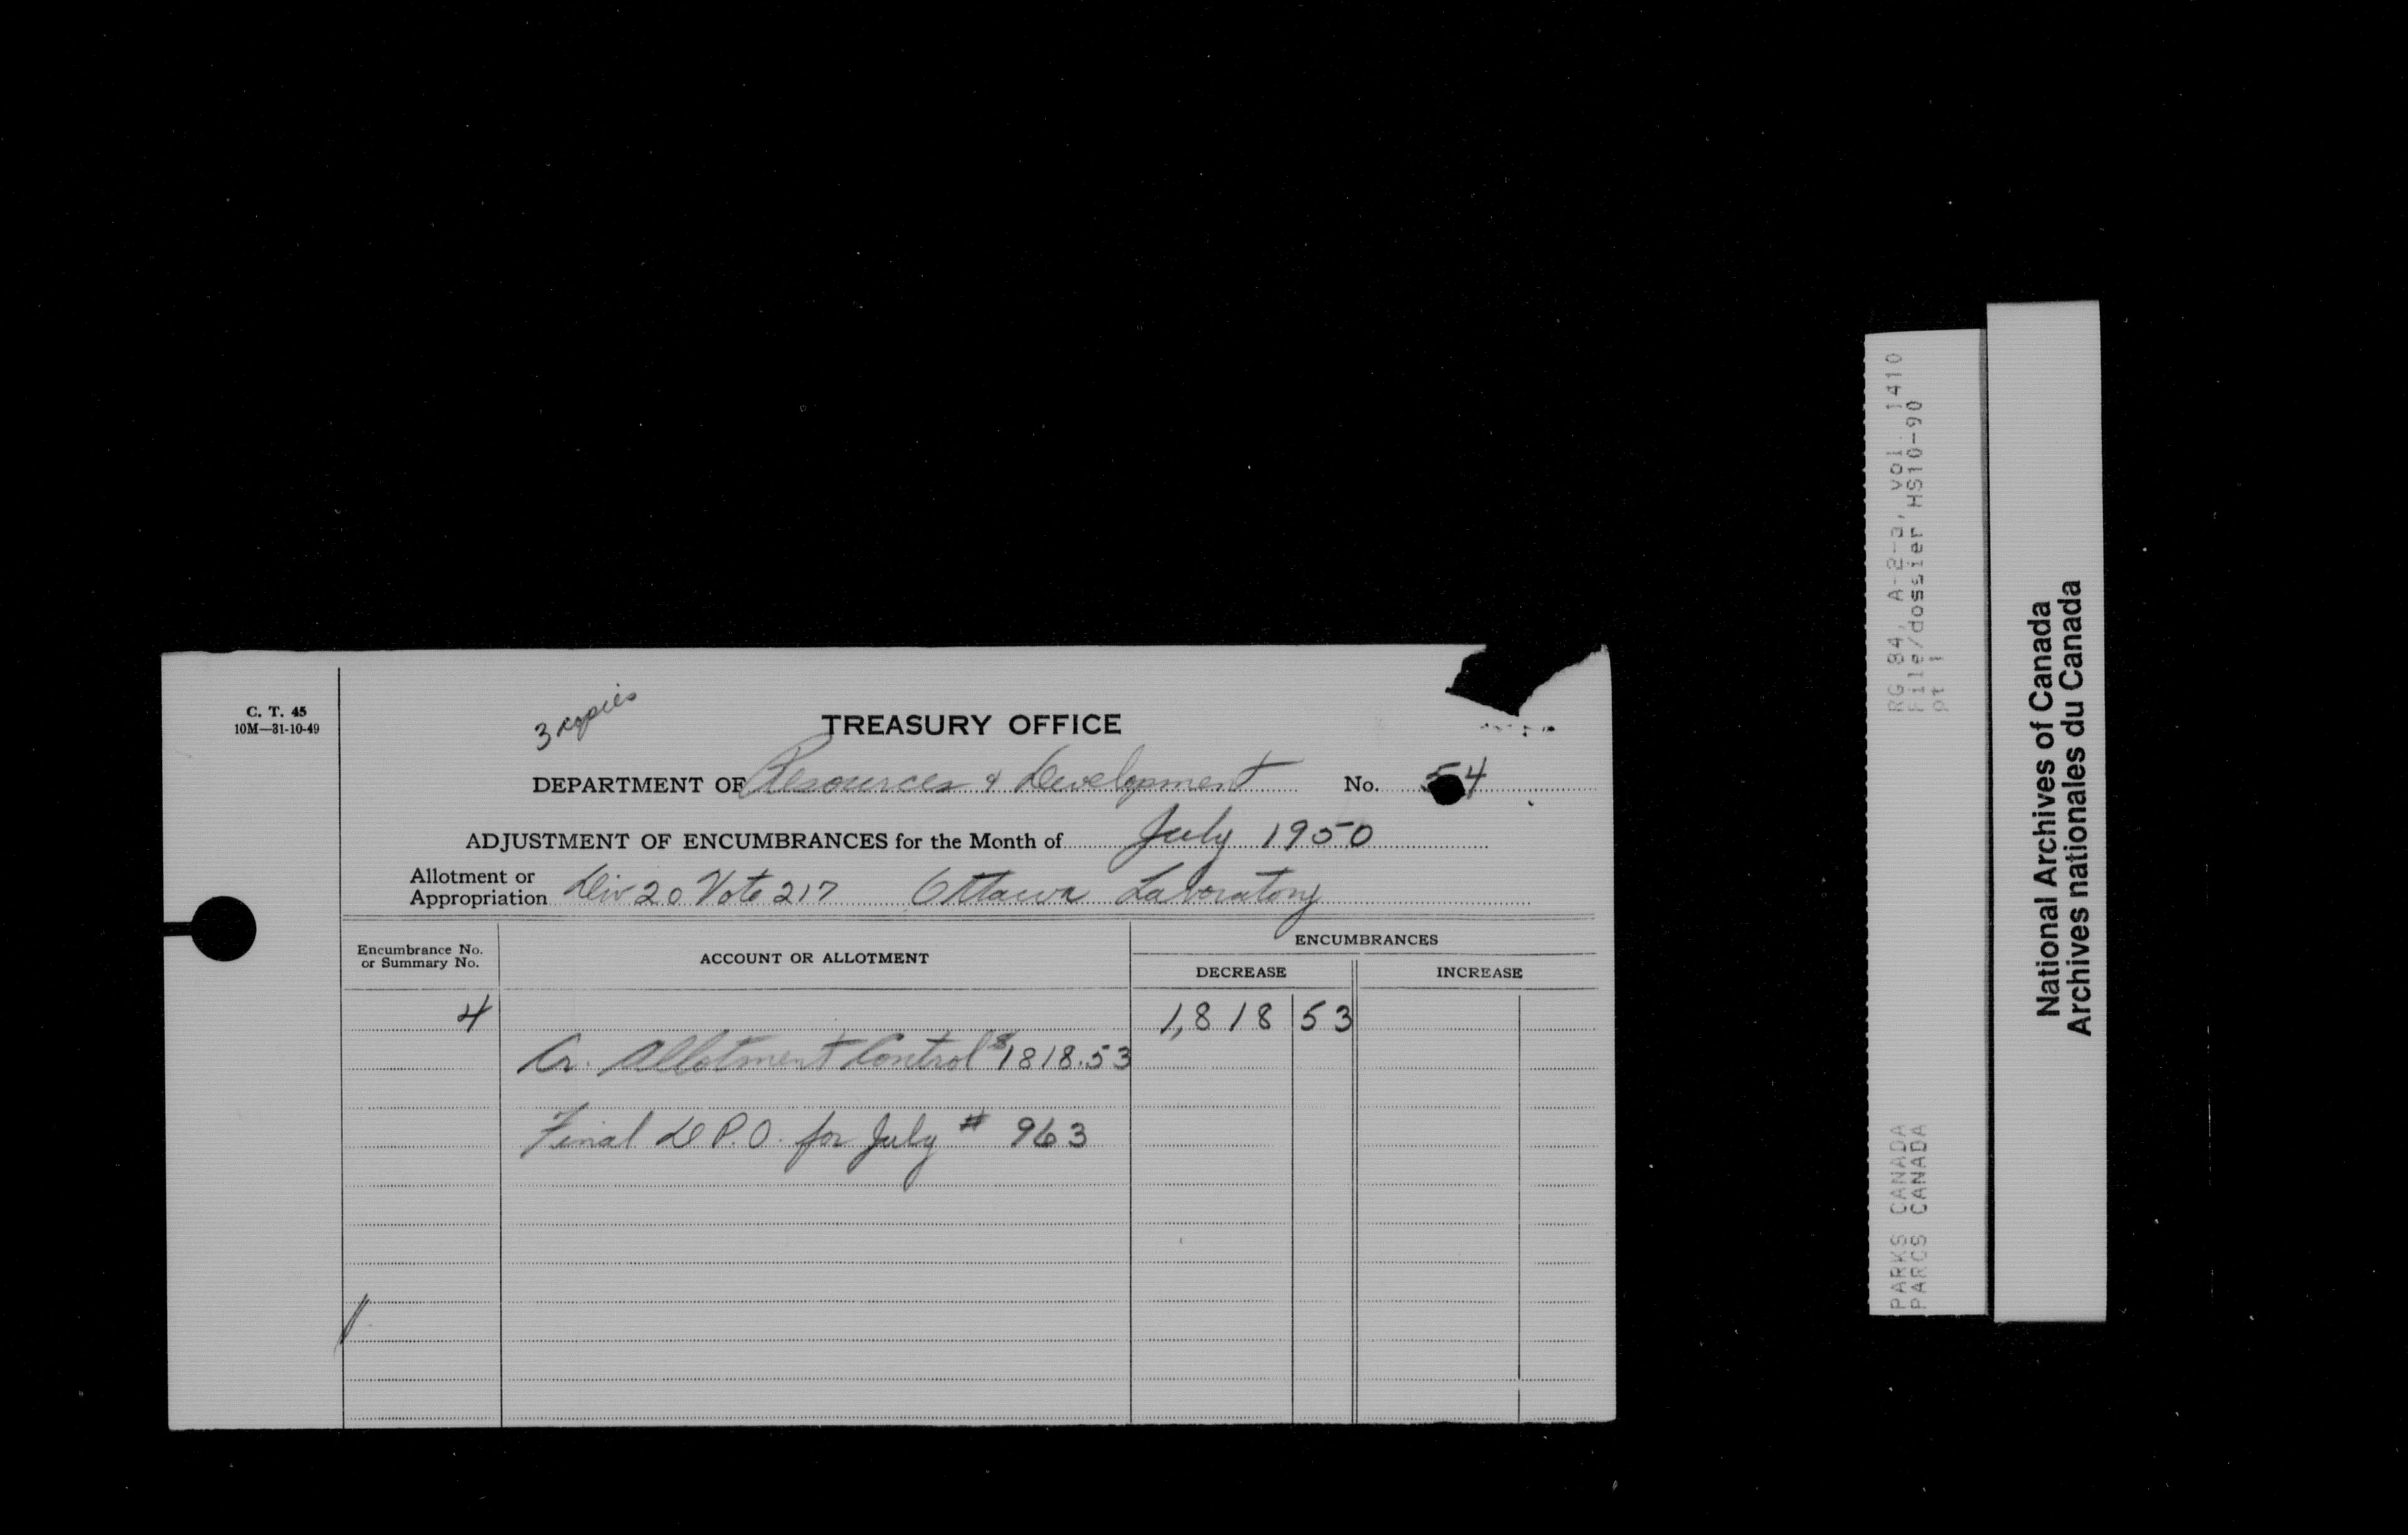 C. T. 45
10M—31-10-49
3 copies
TREASURY OFFICE
DEPARTMENT OF Resources & Development No. 54
ADJUSTMENT OF ENCUMBRANCES for the Month of July 1950
Allotment or
Appropriation Div 20 Vote 217 Ottawa Laboratory
Encumbrance No.
or Summary No.
ACCOUNT OR ALLOTMENT
ENCUMBRANCES
DECREASE INCREASE
4 1,818 53
Cr. Allotment Control $1818.53
Final D.P.O. for July # 963
RG 84, A-2-a, vol. 1410
File/dossier HS10-90
pt 1
PARKS CANADA
PARCS CANADA
National Archives of Canada
Archives nationales du Canada